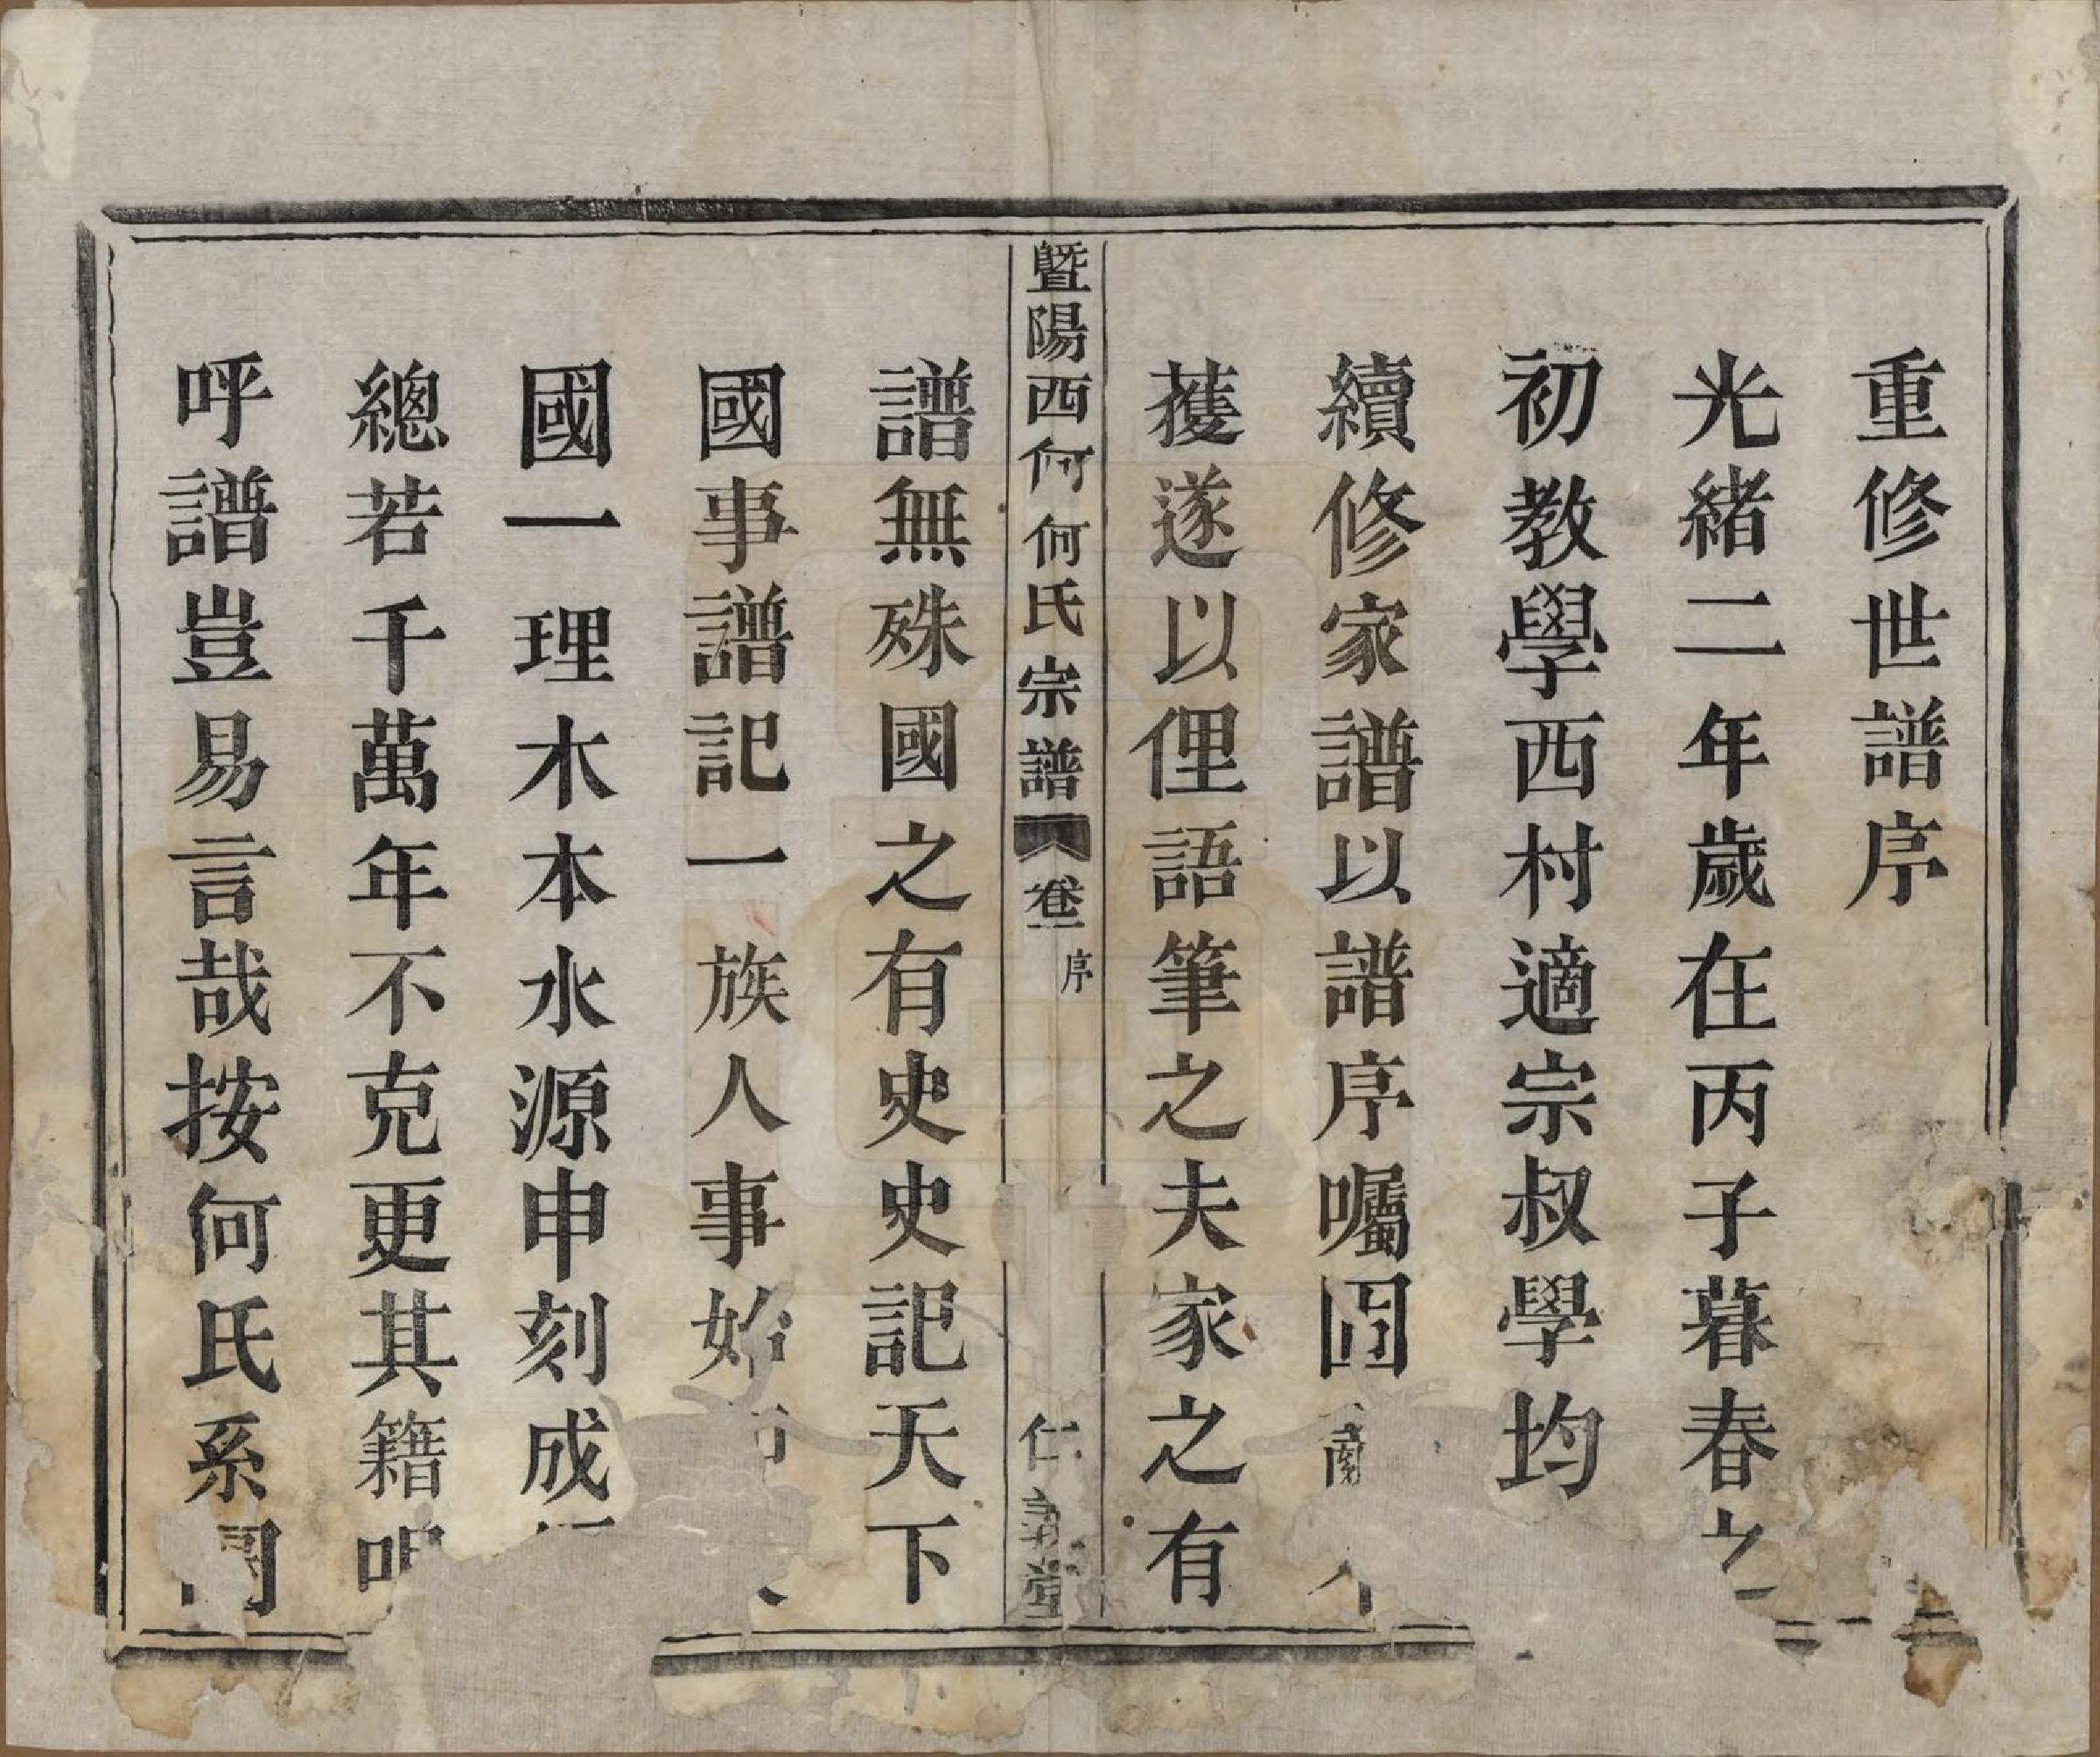 重修世譜序
光緒二年歲在丙子暮春之
初教學西村適宗叔學均
續修家譜以譜序囑固
蒦遂以俚語筆之夫家之有
暨陽西何何氏宗譜
卷一
序
仁義堂
譜無殊國之有史史記天下
國事譜記一族人事始
國一理木本水源申刻成
總若千萬年不克更其籍
呼譜豈易言哉按何氏系